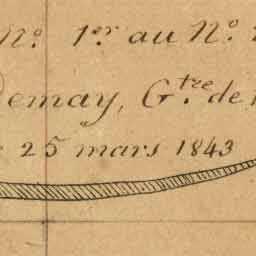 N.º 1.er au N.º
Demay, G.tre de
25 mars 1843